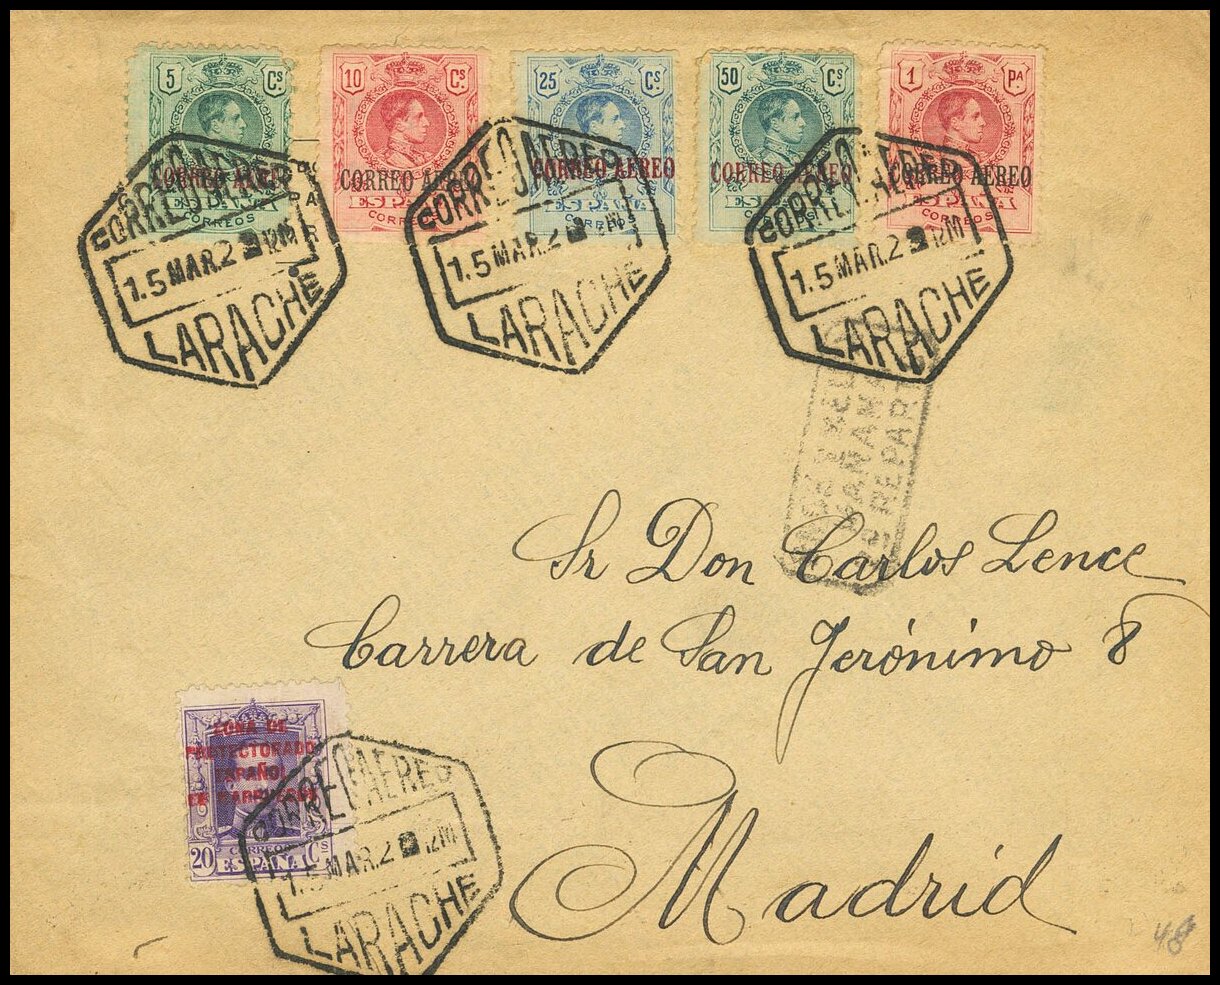 5 Cs
CORREO AEREO
ESPAÑA
CORREOS
10 Cs
CORREO AEREO
ESPAÑA
CORREOS
25 Cs
CORREO AEREO
ESPAÑA
CORREOS
50 Cs
CORREO AEREO
ESPAÑA
CORREOS
1 PA
CORREO AEREO
ESPAÑA
CORREOS
CORREO AEREO
15 MAR. 2 12M
LARACHE
CORREO AEREO
15 MAR. 2 12M
LARACHE
CORREO AEREO
15 MAR. 2 12M
LARACHE
REPAR
Sr Don Carlos Lence
Carrera de San Jerónimo 8
Madrid
ZONA DE
PROTECTORADO
ESPAÑOL
EN MARRUECOS
CORREOS
20 ESPAÑA Cs
CORREO AEREO
15 MAR. 2 12M
LARACHE
48